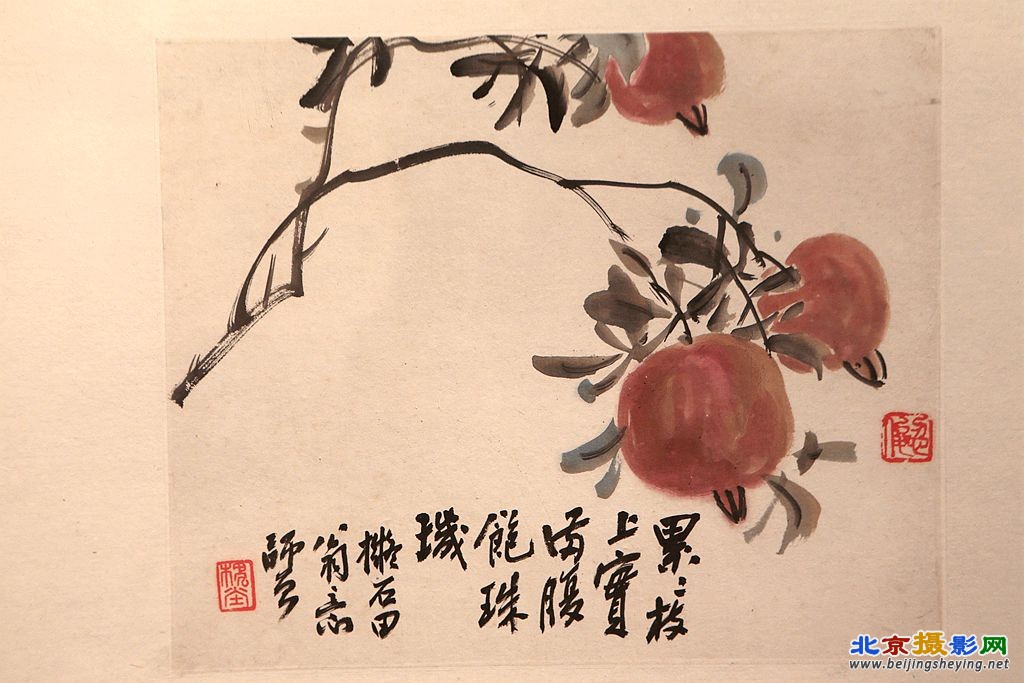 累〻枝
上實
滿腹
飽珠
璣
擬石田
翁意
師曾
槐堂
北京摄影网
www.beijingsheying.net